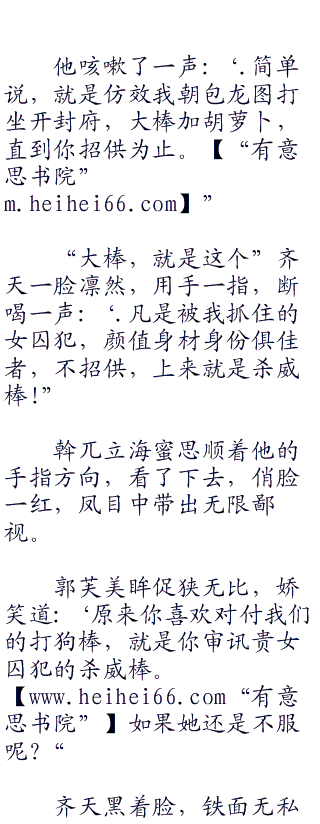 他咳嗽了一声:‘.简单
说，就是仿效我朝包龙图打
坐开封府，大棒加胡萝卜，
直到你招供为止。【“有意
思书院”
m.heihei66.com】”
“大棒，就是这个”齐
天一脸凛然，用手一指，断
喝一声:‘.凡是被我抓住的
女囚犯，颜值身材身份俱佳
者，不招供，上来就是杀威
棒!”
斡兀立海蜜思顺着他的
手指方向，看了下去，俏脸
一红，凤目中带出无限鄙
视。
郭芙美眸促狭无比，娇
笑道:‘原来你喜欢对付我们
的打狗棒，就是你审讯贵女
囚犯的杀威棒。
【www.heihei66.com“有意
思书院”】如果她还是不服
呢?“
齐天黑着脸，铁面无私